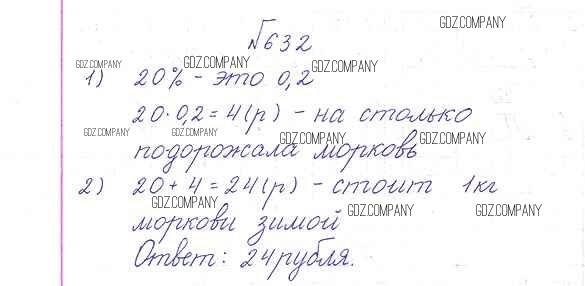 GDZ.COMPANY
№632
GDZ.COMPANY GDZ.COMPANY GDZ.COMPANY
1) 20% - это 0,2
20·0,2=4(р) - на столько
GDZ.COMPANY GDZ.COMPANY GDZ.COMPANY GDZ.COMPANY
подорожала морковь
2) 20+4=24(р) - стоит 1кг
GDZ.COMPANY GDZ.COMPANY GDZ.COMPANY
моркови зимой
Ответ: 24рубля.